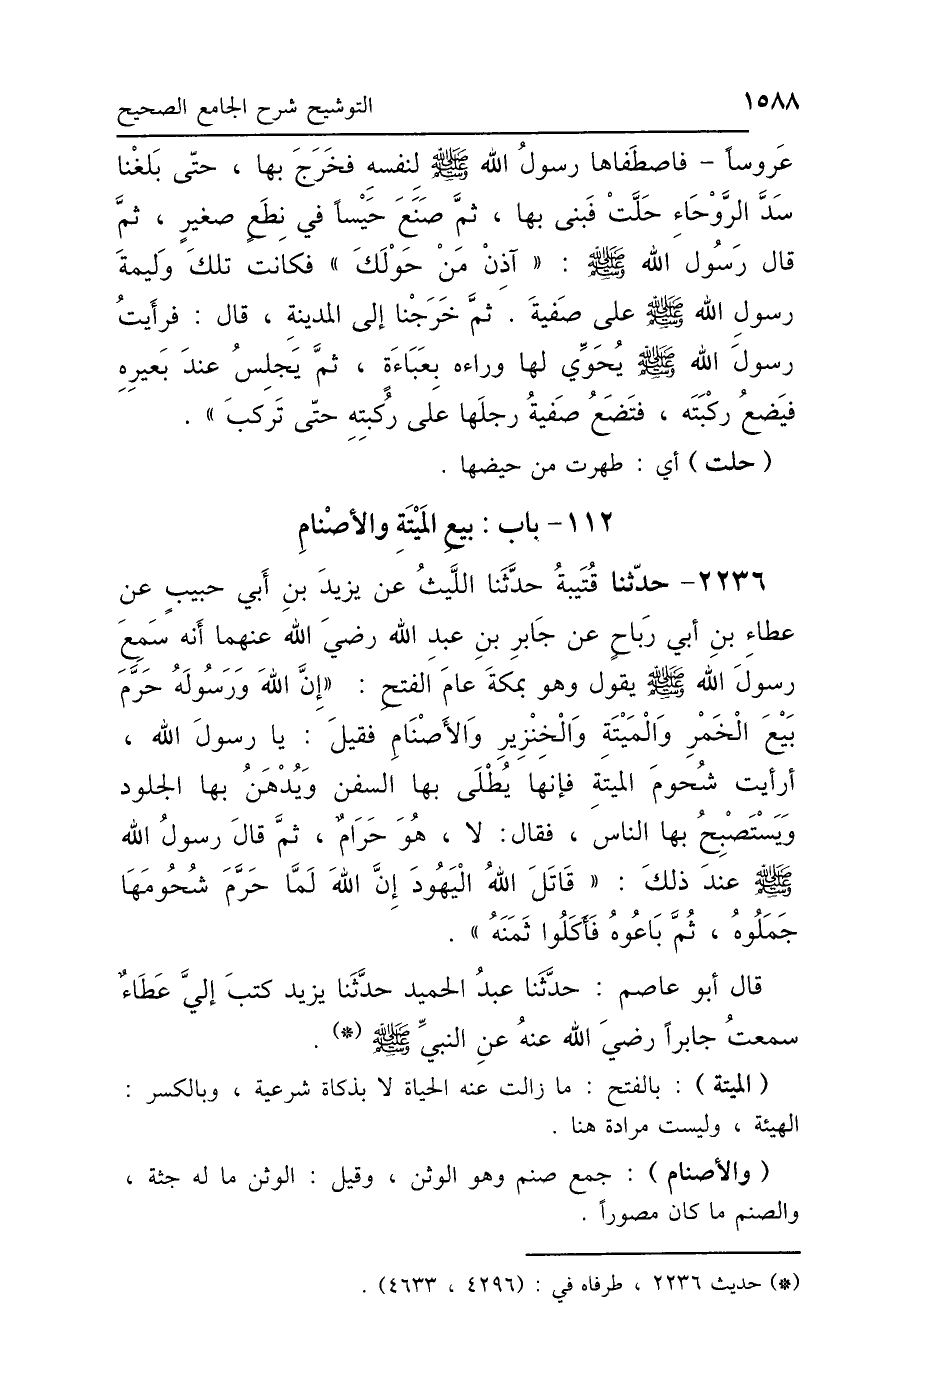 ١٥٨٨ التوشيح شرح الجامع الصحيح
عَروساً - فاصطَفاها رسولُ الله ﷺ لنفسهِ فخَرَجَ بها ، حتّى بَلغْنا
سَدَّ الرَّوْحَاءِ حَلَّتْ فَبنى بها ، ثمَّ صَنَعَ حَيْساً في نِطَعٍ صغيرٍ ، ثمَّ
قال رَسُول الله ﷺ : « آذِنْ مَنْ حَوْلَكَ » فكانت تلكَ وَليمةَ
رسولِ الله ﷺ على صَفيةَ . ثمَّ خَرَجْنا إلى المدينةِ ، قال : فرأَيتُ
رسولَ الله ﷺ يُحَوِّي لها وراءه بِعَبَاءَةٍ ، ثمَّ يَجلِسُ عندَ بَعيرِهِ
فيَضعُ ركْبَتَه ، فتَضَعُ صَفيةُ رجلَها على رُكُبتِهِ حتّى تَركبَ » .
( حلت ) أي : طهرت من حيضها .
١١٢- باب : بيعِ المَيْتَةِ والأصْنامِ
٢٢٣٦- حدّثنا قُتَيبةُ حدَّثَنا اللَّيثُ عن يزيدَ بنِ أَبي حبيبٍ عن
عطاءِ بنِ أبي رَباحٍ عن جَابرِ بنِ عبدِ الله رضيَ الله عنهما أَنه سَمِعَ
رسولَ الله ﷺ يقول وهو بمكةَ عامَ الفتحِ : «إِنَّ اللهَ وَرَسُولَهُ حَرَّمَ
بَيْعَ الْخَمْرِ وَالْمَيْتَةِ وَالْخِنْزِيرِ وَالأَصْنَامِ فقيلَ : يا رسولَ الله ،
أرأيت شُحومَ الميتةِ فإنها يُطْلَى بها السفن وَيُدْهَنُ بها الجلود
وَيَسْتَصْبِحُ بها الناس ، فقال: لا ، هُوَ حَرَامٌ ، ثمَّ قالَ رسولُ الله
ﷺ عندَ ذلكَ : « قَاتَلَ اللهُ الْيَهُودَ إِنَّ اللهَ لَمَّا حَرَّمَ شُحُومَهَا
جَمَلُوهُ ، ثُمَّ بَاعُوهُ فَأَكَلُوا ثَمَنَهُ » .
قال أبو عاصم : حدَّثَنا عبدُ الحميد حدَّثَنا يزيد كتبَ إليَّ عَطَاءٌ
سمعتُ جابراً رضيَ الله عنهُ عنِ النبيِّ ﷺ (*) .
( الميتة ) : بالفتح : ما زالت عنه الحياة لا بذكاة شرعية ، وبالكسر :
الهيئة ، وليست مرادة هنا .
( والأصنام ) : جمع صنم وهو الوثن ، وقيل : الوثن ما له جثة ،
والصنم ما كان مصوراً .
(*) حديث ٢٢٣٦ ، طرفاه في : (٤٢٩٦ ، ٤٦٣٣) .